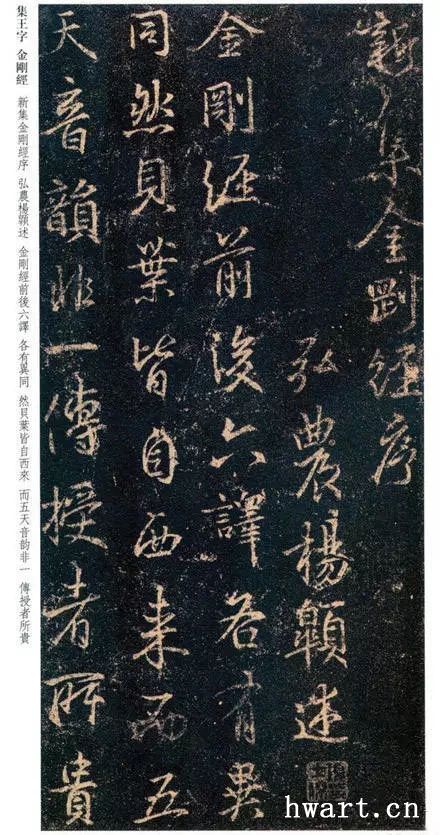 新集金剛經序
弘農楊述
金剛經前後六譯各有異
同然貝葉皆自西來而五
天音韻非一傳授者所貴
集王字 金剛經 新集金剛經序 弘農楊述 金剛經前後六譯 各有異同 然貝葉皆自西來 而五天音韵非一 傳授者所貴
hwart.cn